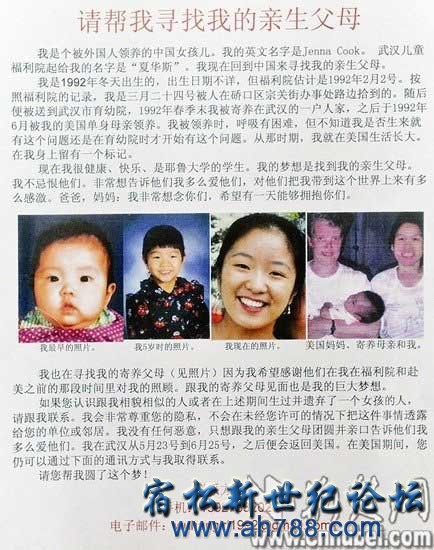 请帮我寻找我的亲生父母
我是个被外国人领养的中国女孩儿。我的英文名字是Jenna Cook。 武汉儿童
福利院起给我的名字是“夏华斯”。我现在回到中国来寻找我的亲生父母。
我是1992年冬天出生的，出生日期不详，但福利院估计是1992年2月2号。按
照福利院的记录，我是三月二十四号被人在硚口区宗关街办事处路边拾到的。随后
便被送到武汉市育幼院，1992年春季末我被寄养在武汉的一户人家，之后于1992年
6月被我的美国单身母亲领养。我被领养时，呼吸有困难，但不知道我是否生来就
有这个问题还是在育幼院时才开始有这个问题。从那时期，我就在美国生活长大。
在我身上留有一个标记。
现在我很健康、快乐、是耶鲁大学的学生。我的梦想是找到我的亲生父母。
我不忌恨他们。非常想告诉他们我多么爱他们，对他们把我带到这个世界上来有多
么感激。爸爸，妈妈：我非常想念你们，希望有一天能够拥抱你们。
我最早的照片。 我5岁时的照片。 我现在的照片。 美国妈妈、寄养母亲和我。
我也在寻找我的寄养父母（见照片）因为我希望感谢他们在我在福利院和赴
美之前的那段时间里对我的照顾。跟我的寄养父母见面也是我的巨大梦想。
如果您认识跟我相貌相似的人或者在上述期间生过并遗弃了一个女孩的人，
请跟我联系。我会非常尊重您的隐私，不会在未经您许可的情况下把这件事情透露
给您的单位或邻居。我没有任何恶意，只想跟我的亲生父母团圆并亲口告诉他们我
多么爱他们。我在武汉从5月23号到6月25号，之后便会返回美国。在美国期间，您
仍可以通过下面的通讯方式与我取得联系。
请您帮我圆了这个梦！
宿松新世纪论坛
www.an788.com
电子邮件：
www.cnhubei.com